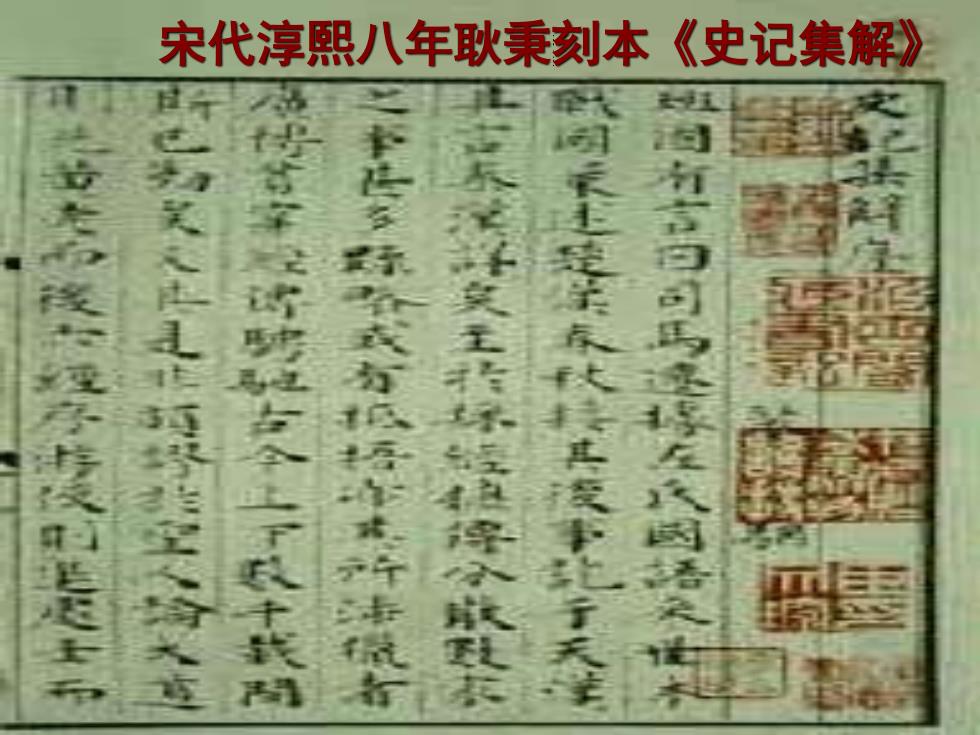 宋代淳熙八年耿秉刻本《史记集解》
史記集解序
裴駰
班固有言曰司馬遷據左氏國語采世本
戰國策述楚漢春秋接其後事訖于天漢
其言秦漢詳矣至於採經摭傳分散數家
之事甚多踈略或有抵捂亦其所涉獵者
廣博貫穿經傳騁馳古今上下數千載間
斯已勤矣又其是非頗謬於聖人論大道
則先黃老而後六經序游俠則退處士而